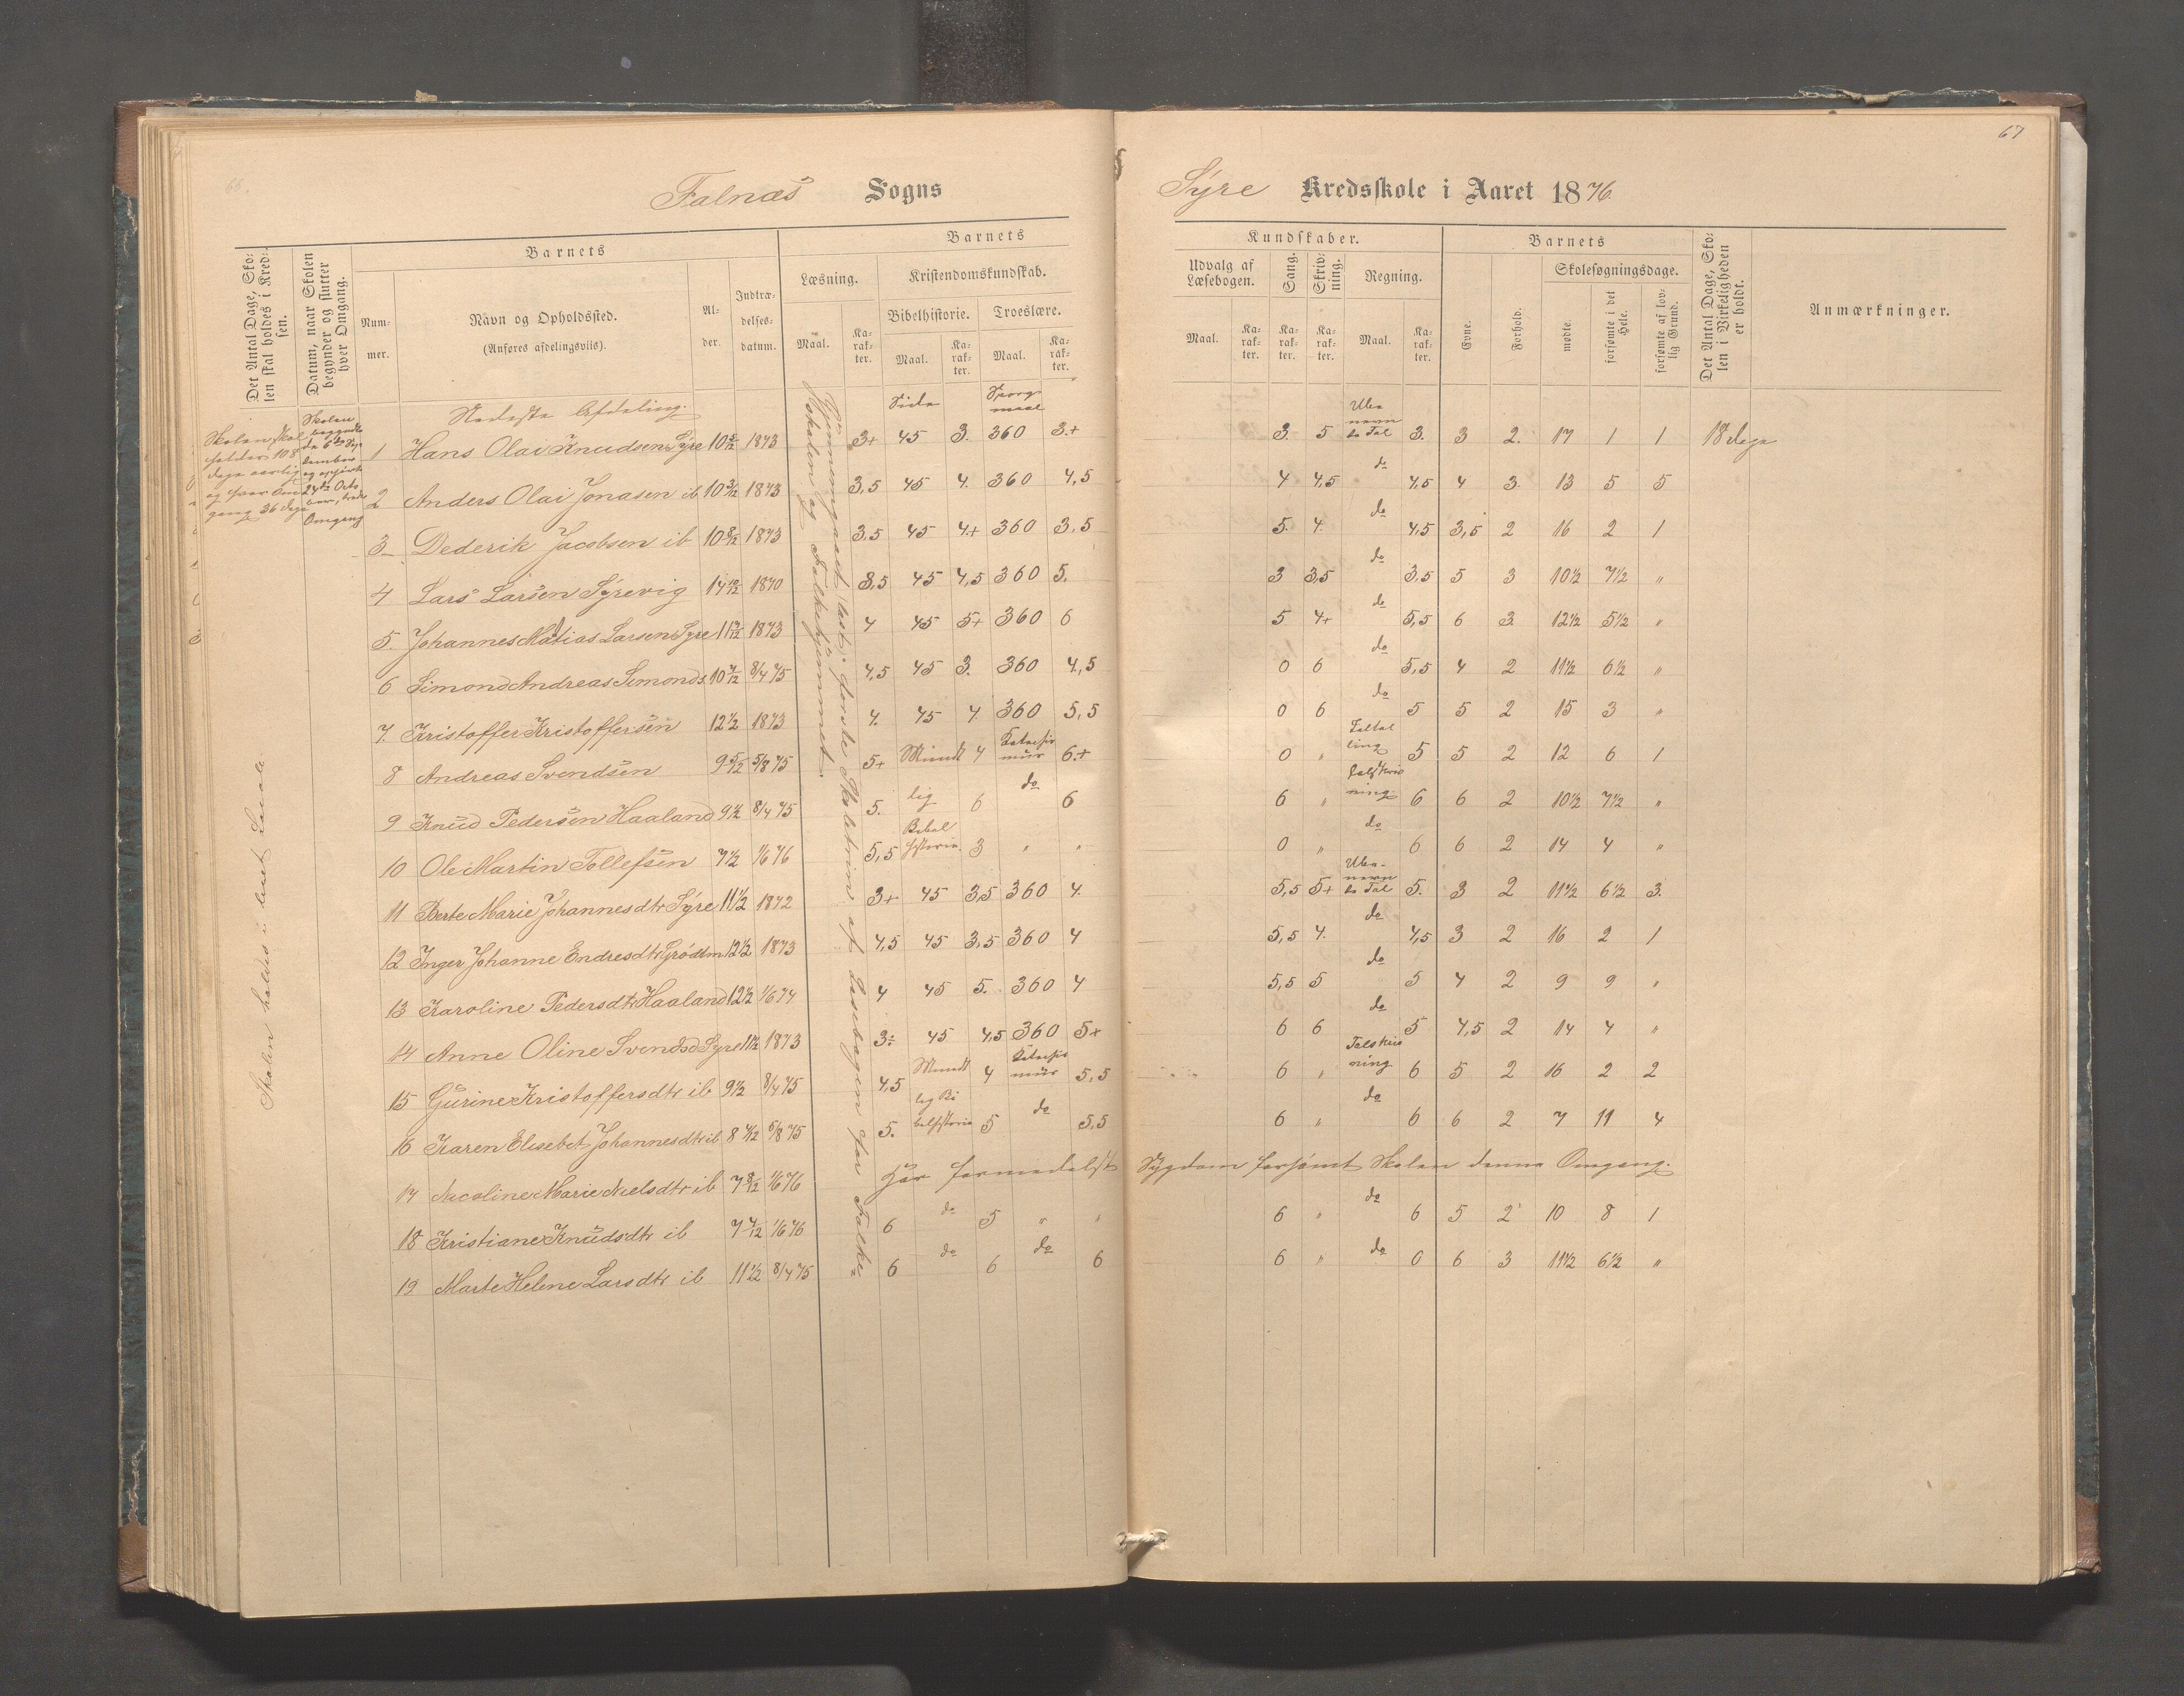 66.
67
Falnæs Sogns
Syre Kredsskole i Aaret 1876.
Det Antal Dage, Skolen skal holdes i Kredsen.
Datum, naar Skolen begynder og slutter hver Omgang.
Barnets
Nummer.
Navn og Opholdssted.
(Anføres afdelingsviis).
Alder.
Indtrædelsesdatum.
Barnets
Læsning.
Maal.
Karakter.
Kristendomskundskab.
Bibelhistorie.
Maal.
Karakter.
Troeslære.
Maal.
Karakter.
Kundskaber.
Udvalg af Læsebogen.
Maal.
Karakter.
Sang.
Karakter.
Skrivning.
Karakter.
Regning.
Maal.
Karakter.
Barnets
Evne.
Forhold.
Skolesøgningsdage.
mødte.
forsømte i det Hele.
forsømte af lovlig Grund.
Det Antal Dage, Skolen i Virkeligheden er holdt.
Anmærkninger.
Nederste Afdeling.
Side
Spørgsmaal
Skolen skal holdes 108 dage aarlig og hver Omgang 36 dage
Skolen begyndte de 6te September og opførte 24de October, tredie Omgang
Skolen holdes i leiet Locale.
Gjennemgaaet (læst): første Skoletrin af Læsebogen for Folkeskolen og Folkehjemmet.
1 Hans Olai Knudsen Syre 10 5/12 1873 3+ 45 3. 360 3.+ 3. 5 Ubenævnte Tal 3. 3 2. 17 1 1 18 dage
2 Anders Olai Jonasen ib 10 3/12 1873 3,5 45 4. 360 4,5 4 4,5 do 4,5 4 3. 13 5 5
3 Dederik Jacobsen ib 10 8/12 1873 3.5 45 4.+ 360 3.5 5. 4. do 4,5 3,5 2 16 2 1
4 Lars Larsen Syrevig 14 10/12 1870 3,5 45 4,5 360 5. 3 3,5 do 3,5 5 3 10½ 7½ "
5. Johannes Matias Larsen Syre 11 7/12 1873 4 45 5+ 360 6 5 4+ do 5,5 6 3 12½ 5½ "
6 Simond Andreas Simonds. 10 7/12 8/4 75 4,5 45 3. 360 4,5 0 6 do 5,5 4 2 11½ 6½ "
7. Kristoffer Kristoffersen 12½ 1873 4. 45 4 360 5,5 0 6 do 5 5 2 15 3 "
8 Andreas Svendsen 9 5/12 5/8 75 5+ Mundt 4 Katechismus 6.+ 0 " Taltælling 5 5 2 12 6 1
9 Knud Pedersen Haaland 9½ 8/4 75 5. lig 6 do 6 6 " Talskrivning 6 6 2 10½ 7½ "
10 Ole Martin Tollefsen 7½ 1/6 76 5,5 Bibelhistorie. 3 " " 0 " do 6 6 2 14 4 "
11 Berte Marie Johannesdtr Syre 11½ 1872 3+ 45 3,5 360 4. 5,5 5+ Ubenævnte Tal 5. 3 2 11½ 6½ 3.
12 Inger Johanne Endresdtr Grødem 12½ 1873 4,5 45 3,5 360 4 5,5 4. do 4,5 3 2 16 2 1
13 Karoline Pedersdtr Haaland 12½ 1/6 74 4 45 5. 360 4 5,5 5 do 5 4 2 9 9 "
14 Anne Oline Svendsd Syre 11½ 1873 3÷ 45 4,5 360 5+ 6 6 do 5 4,5 2 14 4 "
15 Gurine Kristoffersdtr ib 9½ 8/4 75 4,5 Mundt 4 Katechismus 5,5 6 " Talskrivning 6 5 2 16 2 2
16 Karen Elisebet Johannesdtr ib 8 4/12 5/8 75 5. lig Bibelhistorie 5 do 5,5 6 " do 6 6 2 7 11 4
17 Nicoline Marie Nielsdtr ib 7 8/12 1/6 76 Har formedelst Sygdom forsømt Skolen denne Omgang.
18 Kristiane Knudsdtr ib 7 7/12 1/6 76 6 do 5 " " 6 " do 6 5 2 10 8 1
19 Marte Helene Larsdtr ib 11½ 8/4 75 6 do 6 do 6 6 " do 0 6 3 11½ 6½ "